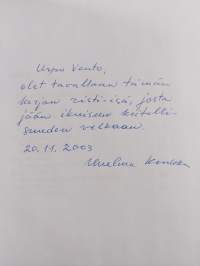 Urpo Vento,
olet tavallaan tämän
kirjan risti-isä, josta
jään ikuiseen kiitolli-
suuden velkaan.
20.11.2003